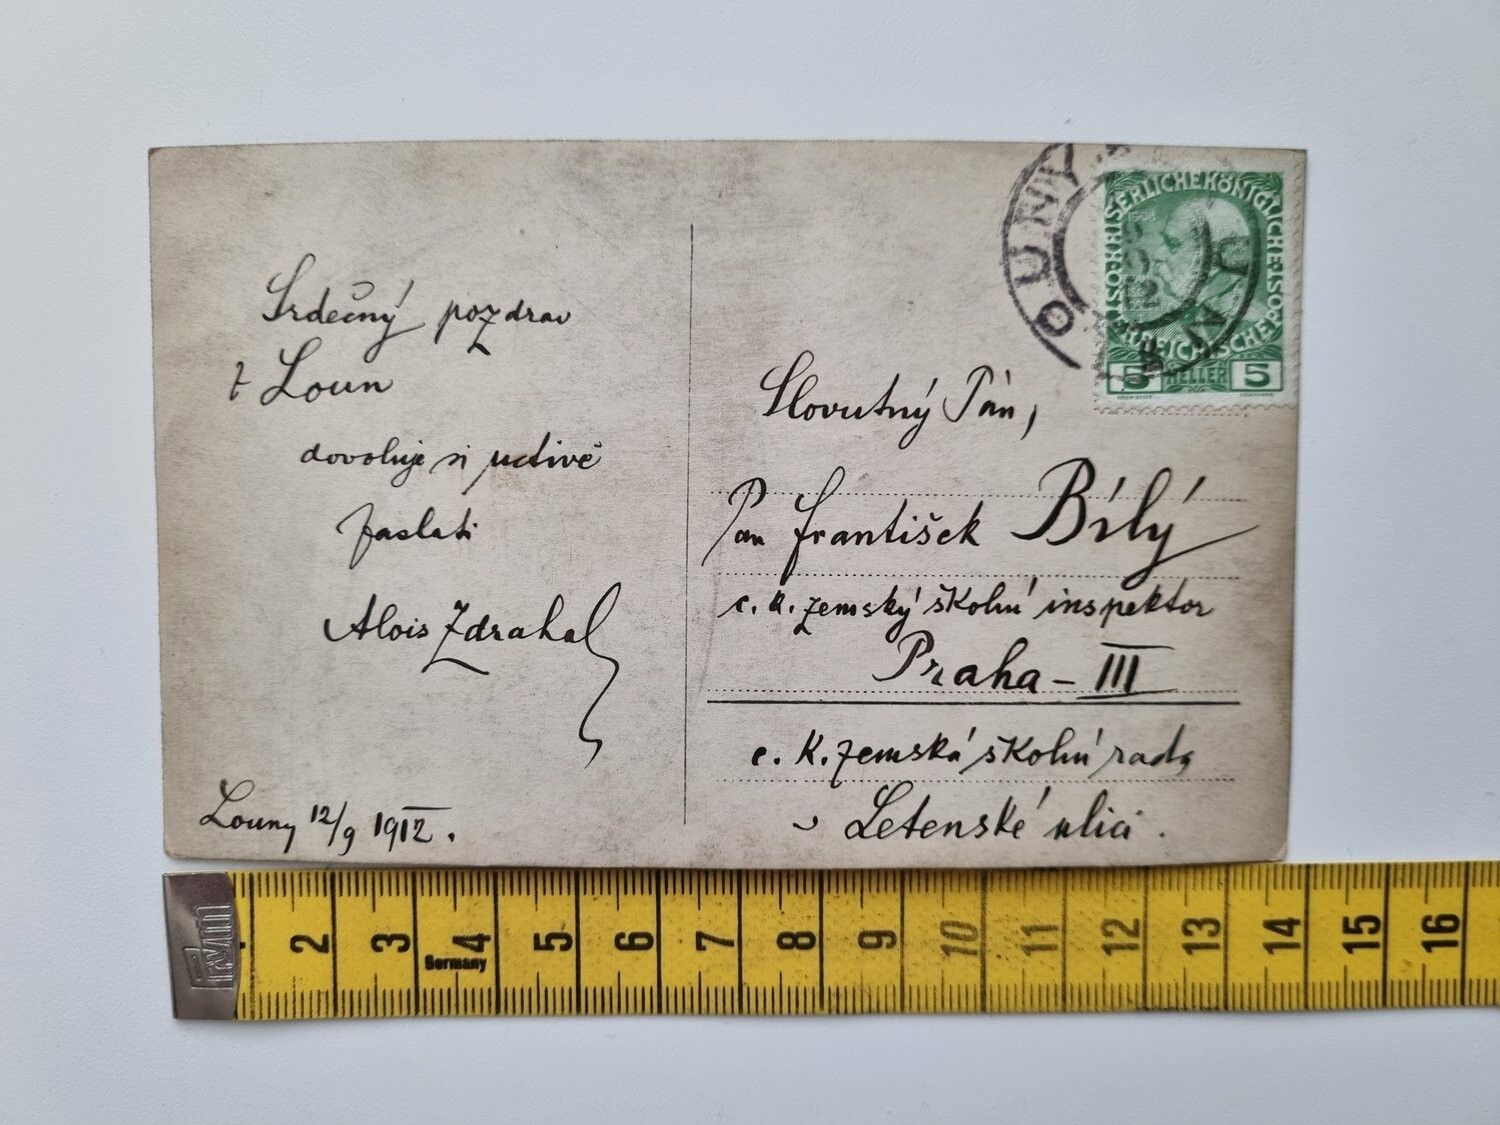 Srdečný pozdrav
z Loun
dovoluje si uctivě
zaslati
Alois Zdrahal
Louny 12/9 1912.
LOUNY
LAUN
12
KAISERLICHE KÖNIGLICHE ÖSTERREICHISCHE POST
1908
5 HELLER 5
Slovutný Pán,
Pan František Bílý
c. k. zemský školní inspektor
Praha - III
c. k. zemská školní rada
v Letenské ulici.
Prym
2 3 4 5 6 7 8 9 10 11 12 13 14 15 16
Germany